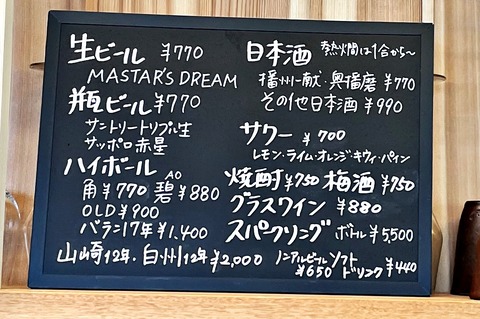 生ビール ¥770
MASTAR'S DREAM
瓶ビール ¥770
サントリートリプル生
サッポロ赤星
ハイボール
角 ¥770 碧AO ¥880
OLD ¥900
バラン17年 ¥1.400
山崎12年・白州12年 ¥2,000
日本酒 熱燗は1合から〜
播州一献・奥播磨 ¥770
その他日本酒 ¥990
サワー ¥700
レモン・ライム・オレンジ・キウィ・パイン
焼酎 ¥750 梅酒 ¥750
グラスワイン ¥880
スパークリング ボトル ¥5,500
ノンアルビール ¥650 ソフトドリンク ¥440